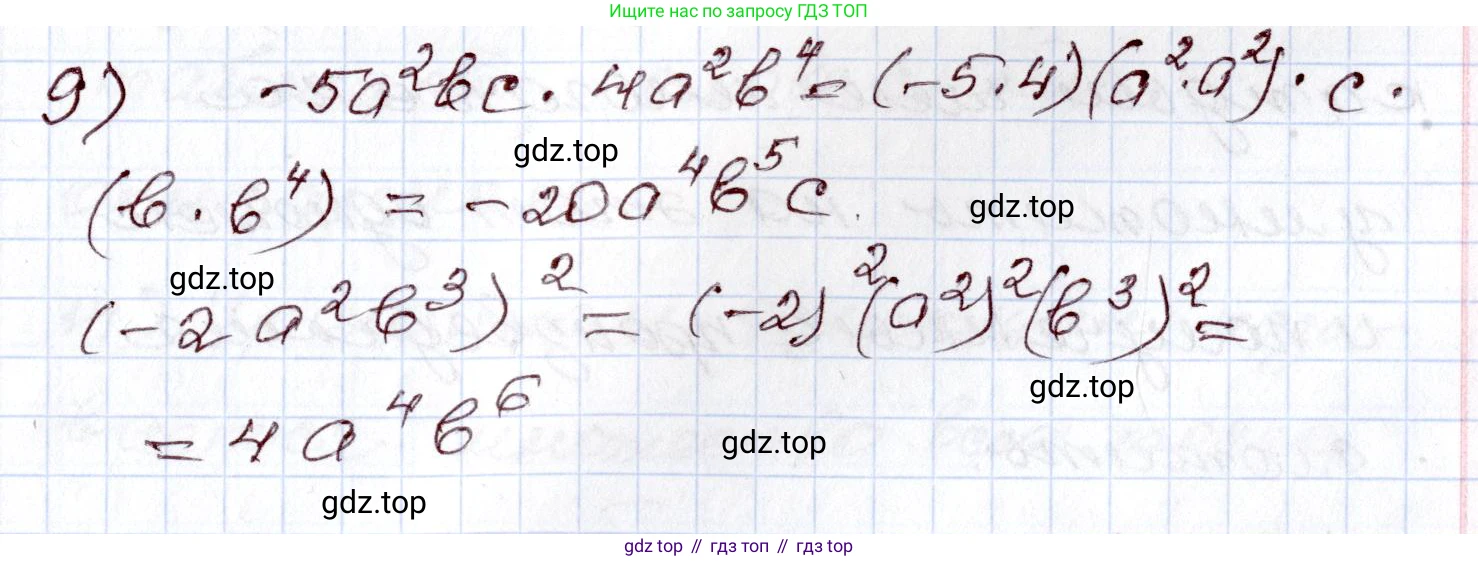 Ищите нас по запросу ГДЗ ТОП
9) -5a²bc · 4a²b⁴ = (-5·4)(a²·a²) · c ·
gdz.top
(b·b⁴) = -20a⁴b⁵c.
gdz.top
gdz.top
(-2a²b³)² = (-2)²(a²)²(b³)² =
gdz.top
= 4a⁴b⁶
gdz.top
gdz.top
gdz top // гдз топ // гдз top